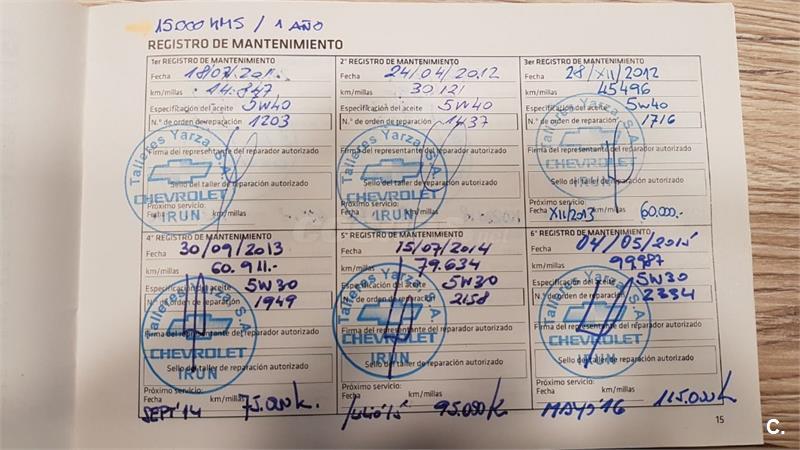 15.000 KMS / 1 AÑO
REGISTRO DE MANTENIMIENTO
1er REGISTRO DE MANTENIMIENTO
Fecha 18/07/201
km/millas 14.847
Especificación del aceite 5W40
N.° de orden de reparación 1203
Firma del representante del reparador autorizado
Sello del taller de reparación autorizado
Talleres Yarza S.A.
CHEVROLET
IRUN
Próximo servicio:
Fecha km/millas
2° REGISTRO DE MANTENIMIENTO
Fecha 24/04/2012
km/millas 30121
Especificación del aceite 5W40
N.° de orden de reparación 1437
Firma del representante del reparador autorizado
Sello del taller de reparación autorizado
Talleres Yarza S.A.
CHEVROLET
IRUN
Próximo servicio:
Fecha km/millas
3er REGISTRO DE MANTENIMIENTO
Fecha 28/XII/2012
km/millas 45496
Especificación del aceite 5W40
N.° de orden de reparación 1716
Firma del representante del reparador autorizado
Sello del taller de reparación autorizado
Talleres Yarza S.A.
CHEVROLET
IRUN
Próximo servicio:
Fecha XII/2013 km/millas 60.000.-
4° REGISTRO DE MANTENIMIENTO
Fecha 30/09/2013
km/millas 60.911.-
Especificación del aceite 5W30
N.° de orden de reparación 1949
Firma del representante del reparador autorizado
Sello del taller de reparación autorizado
Talleres Yarza S.A.
CHEVROLET
IRUN
Próximo servicio:
Fecha km/millas
SEPT'14 75.000K.
5° REGISTRO DE MANTENIMIENTO
Fecha 15/07/2014
km/millas 79.634
Especificación del aceite 5W30
N.° de orden de reparación 2158
Firma del representante del reparador autorizado
Sello del taller de reparación autorizado
Talleres Yarza S.A.
CHEVROLET
IRUN
Próximo servicio:
Fecha km/millas
Julio'15 95.000K
6° REGISTRO DE MANTENIMIENTO
Fecha 04/05/2015
km/millas 99987
Especificación del aceite 5W30
N.° de orden de reparación 2334
Firma del representante del reparador autorizado
Sello del taller de reparación autorizado
Talleres Yarza S.A.
CHEVROLET
IRUN
Próximo servicio:
Fecha km/millas
MAYO'16 115.000K
15
C.